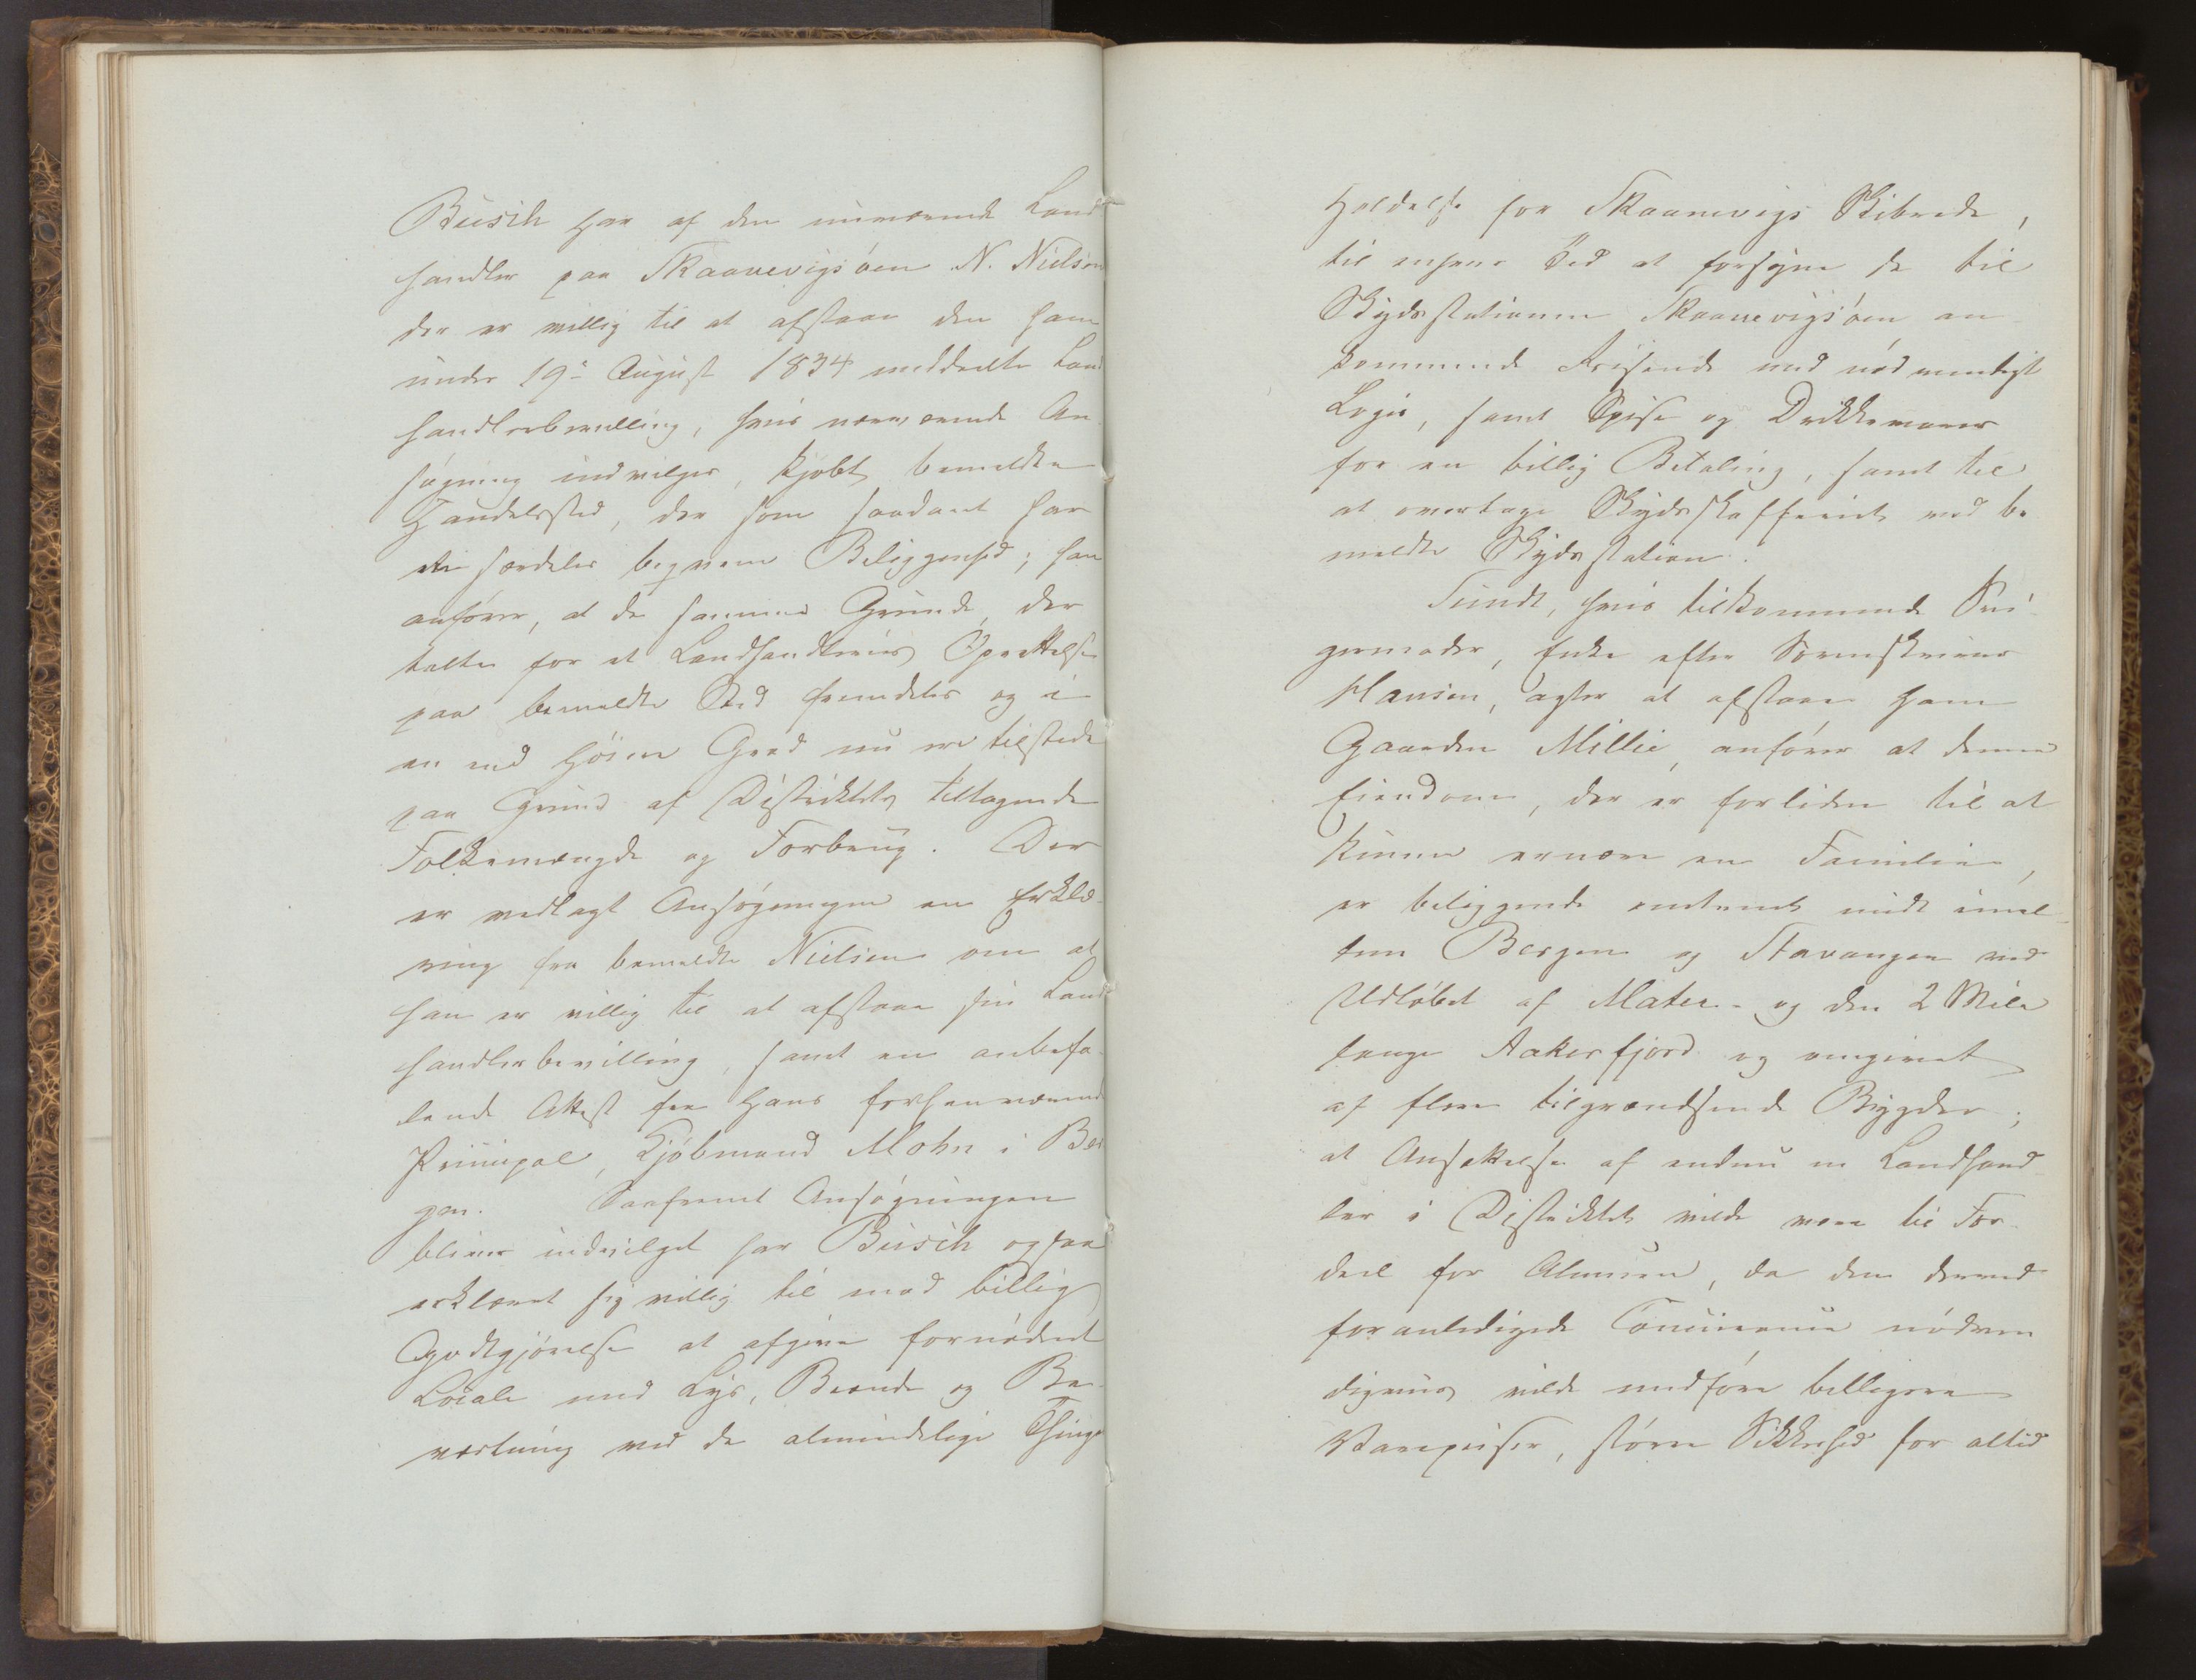 Busch har af den nuværende Land
handler paa Skaanevigsøen N. Nielsen
der er villig til at afstaae den ham
under 19de August 1834 meddeelte Land
handlerbevilling, hvis nærværende An
søgning indvilges, kjøbt bemeldte
Handelssted, der som saadant har
en særdeles beqvem Beliggenhed; han
anfører, at de samme Grunde, der
talte for et Landhandleries Oprettelse
paa bemeldte Sted fremdeles og i
en end høiere Grad nu ere tilstede
paa Grund af Distriktets tiltagende
Folkemængde og Forbrug. Der
er vedlagt Ansøgningen en Erklæ
ring fra bemeldte Nielsen om at
han er villig til at afstaae sin Land
handlerbevilling, samt en anbefa
lende Attest fra hans forhenværende
Principal, Kjøbmand Mohn i Ber
gen. Saafremt Ansøgningen
bliver indvilget har Busch ogsaa
erklæret sig villig til mod billig
Godtgjørelse at afgive fornødent
Locale med Lys, Brænde og Be-
værtning ved de almindelige Things
Holdelse for Skaanevigs Skibrede,
til enhver Tid at forsyne de til
Skydsstationen Skaanevigsøen an-
kommende Reisende med nødvendigt
Logis, samt Spise og Drikkevarer
for en billig Betaling, samt til
at overtage Skydsskafferiet ved be
meldte Skydsstation.
Sundt, hvis tilkommende Svi-
germoder, Enke efter Sorenskriver
Hansen, agter at afstaae ham
Gaarden Millie, anfører at denne
Eiendom, der er forliden til at
kunne ernære en Familie,
er beliggende omtrent midt imel-
lem Bergen og Stavanger ved
Udløbet af Matre- og den 2 Mile
lange Aakerfjord og omgivet
af flere tilgrændsende Bygder;
at Ansættelse af endnu en Landhand-
ler i Distriktet vilde være til For-
deel for Almuen, da den derved
foranledigede Concurrence nødven
digviis vilde medføre billigere
Varepriser, større Sikkerhed for altid